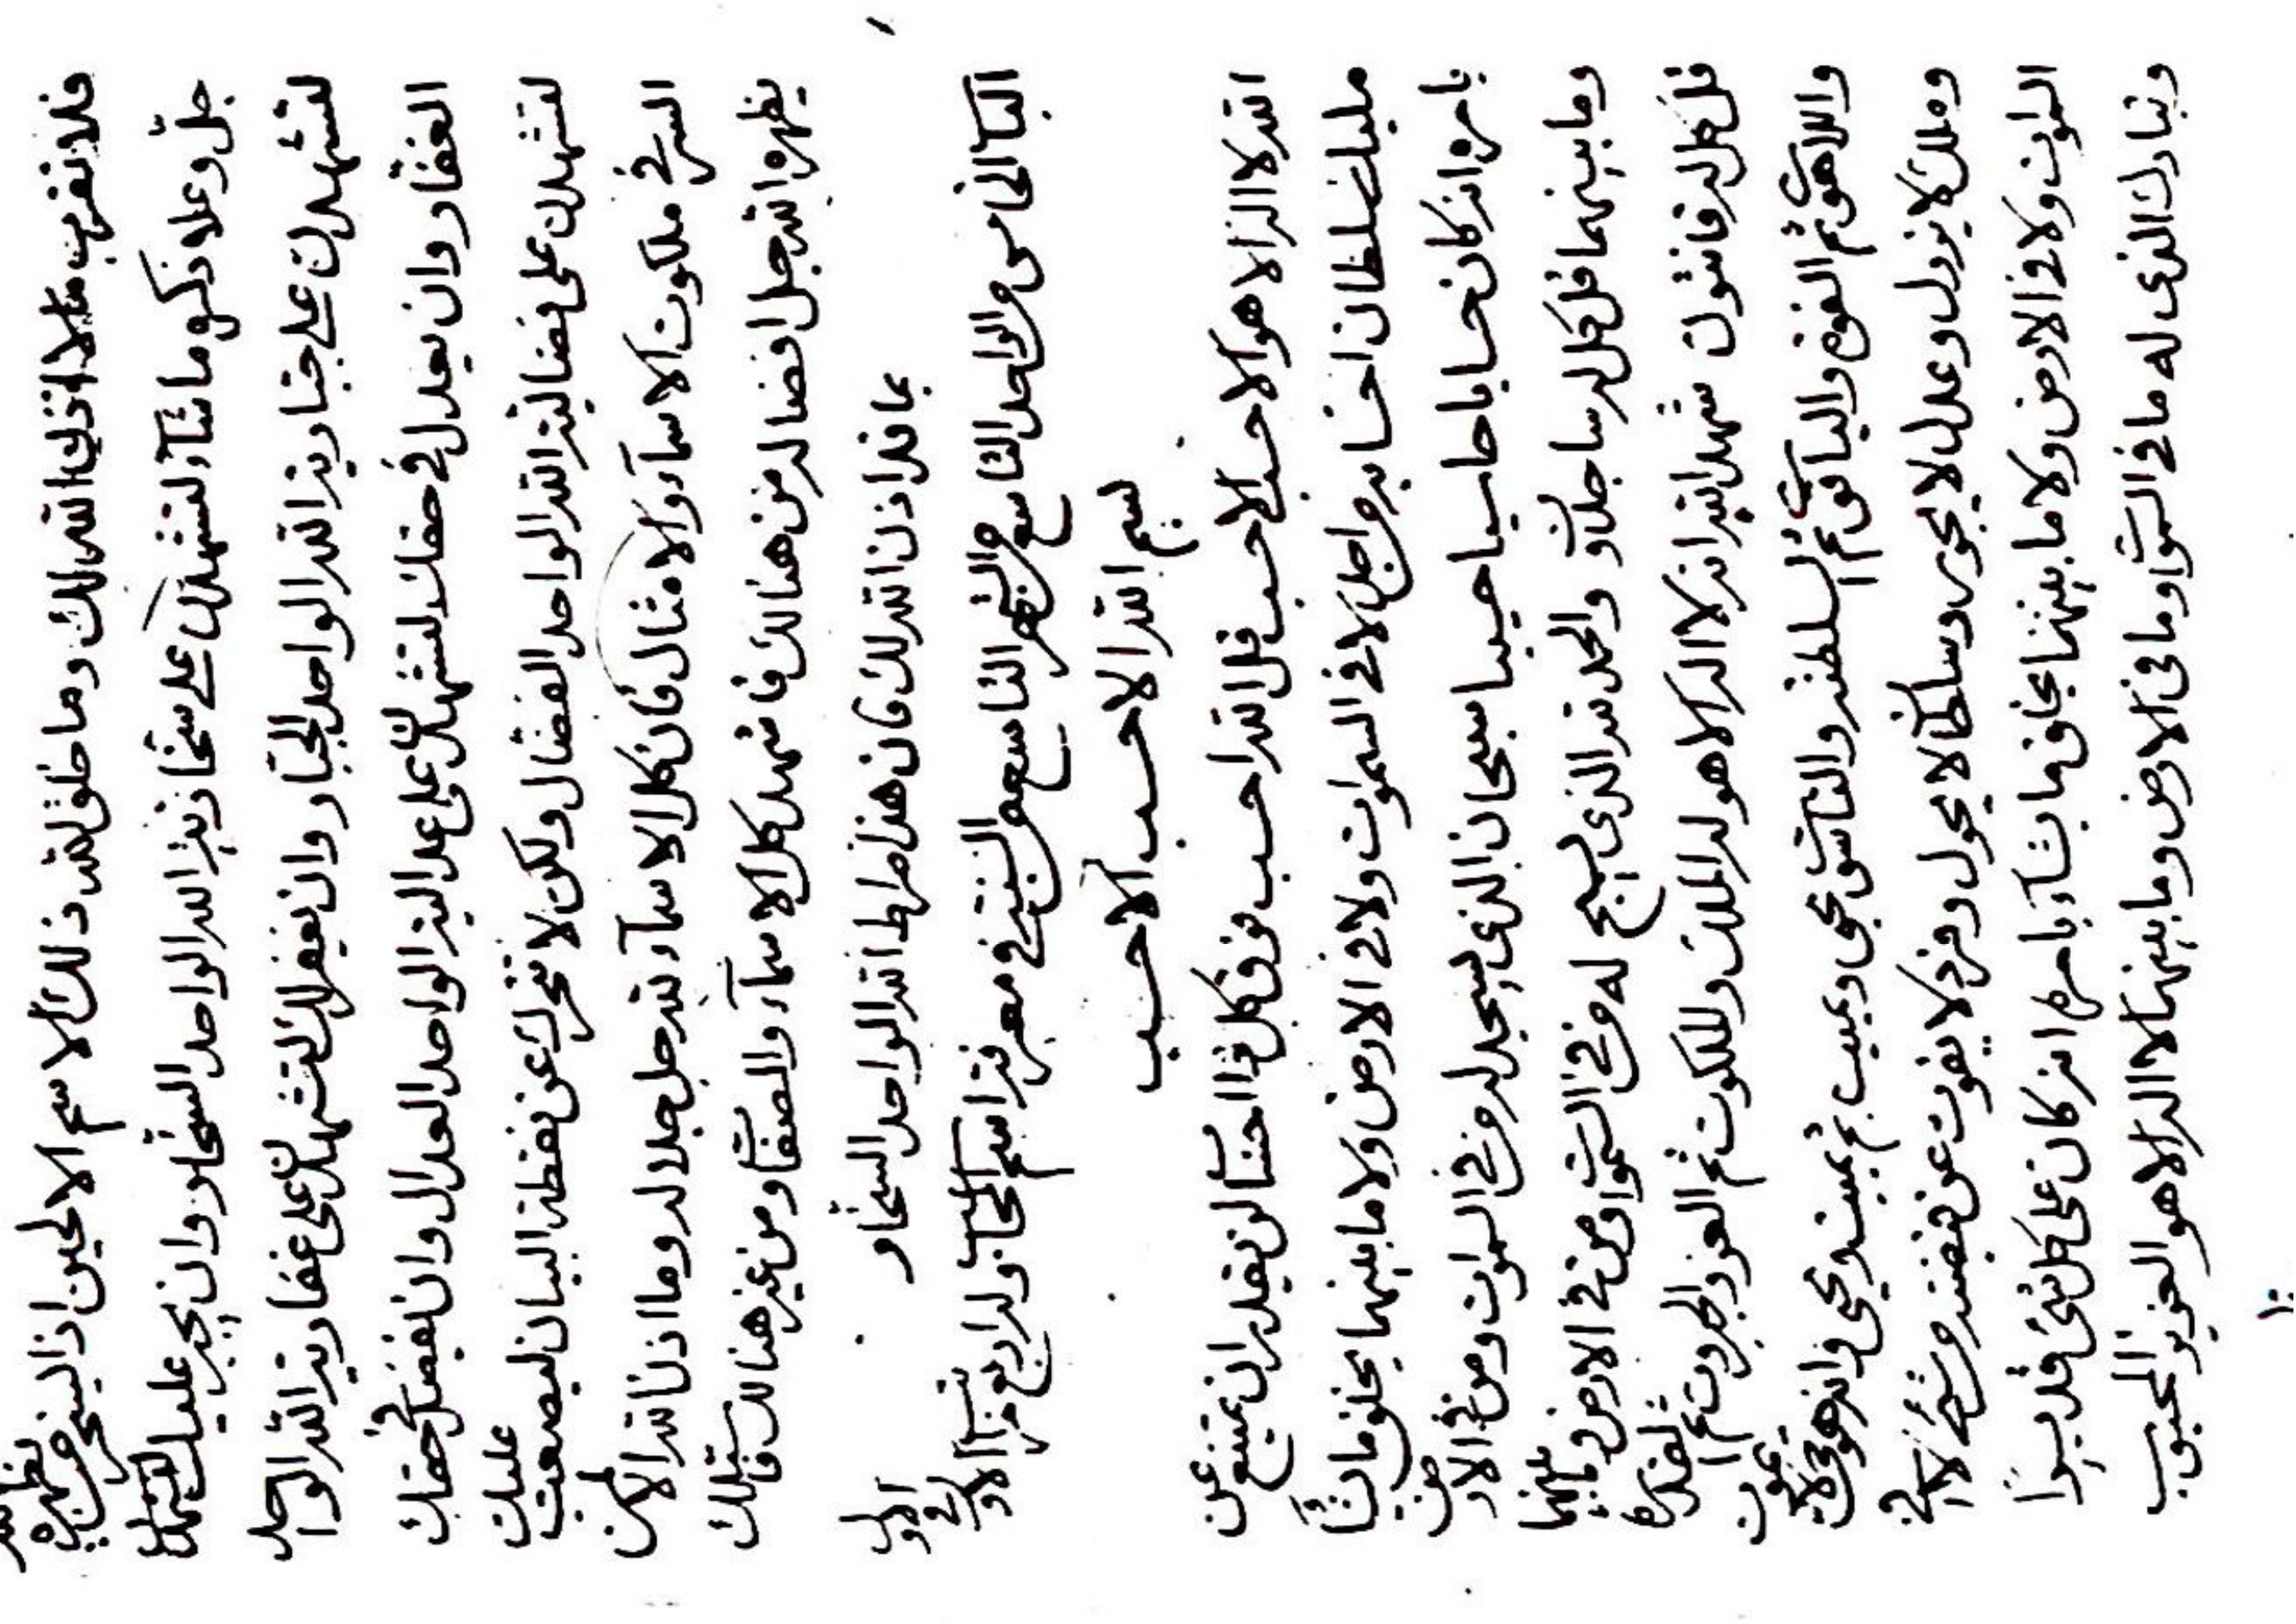 فلا تقرب الا اذن الله لك وما خلق لله ذلك الاسم الا لحين اذ السخر من يظهره الله
جل وعلا ذكره ما شآء لتشهدن على سخار يته الله الواحد السخار وان يجبر عليك لتشهدن
لتشهدن على جبار ية الله الواحد الجبار وان يغفر لك لتشهدن على غفار ية الله الواحد
الغفار وان يعدل في حقك لتشهدن على عدالية الواحد العدال وان يفضل في حقك
لتشهدن على فضالية الله الواحد الفضال ولكن لا تتحرك عن نقطة البيان ليصعب عليك
السر في ملكوت الاسمآء والامثال فان كل الاسمآء لله جل جلاله وما اذن الله الا لمن
يظهره الله جل افضاله من هنالك فاشهد كل الاسمآء والصفات ومن غير هنالك فاتلك
بما قد اذن الله لك فان هذا صراط الله الواحد السخار
الباب الخامس من الواحد التاسع من الشهر التاسع من السنة في معرفة اسم الحاسب وله اربع مراتب الاول في الاول
بسم الله الاحسب الاحسب
الله لا اله الا هو الاحسب الاحسب قل الله احسب فوق كل ذا احساب لن يقدر ان يمتنع عن
مليك سلطان احسابه من احد لا في السموات ولا في الارض ولا ما بينهما يخلق ما يشآء
بامره انه كان حسابا حاسبا حسيبا سبحان الذي يسجد له من في السموات ومن في الارض
وما بينهما قل كل له ساجدون والحمد لله الذي يسبح له من في السموات ومن في الارض وما بينهما
قل كل له قانتون شهد الله انه لا اله الا هو له الملك والملكوت ثم العز والجبروت ثم القدرة
واللاهوت ثم القوة والياقوت ثم السلطنة والناسوت يحيي ويميت ثم يميت ويحيي وانه هو حي لا يموت
وملك لا يزول وعدل لا يجور وسلطان لا يحول وفرد لا يفوت عن قبضته من شيء لا في
السموات ولا في الارض ولا ما بينهما يخلق ما يشآء بامره انه كان على كل شيء قديرا
وتبارك الذي له ما في السموات وما في الارض وما بينهما لا اله الا هو العزيز المحبوب